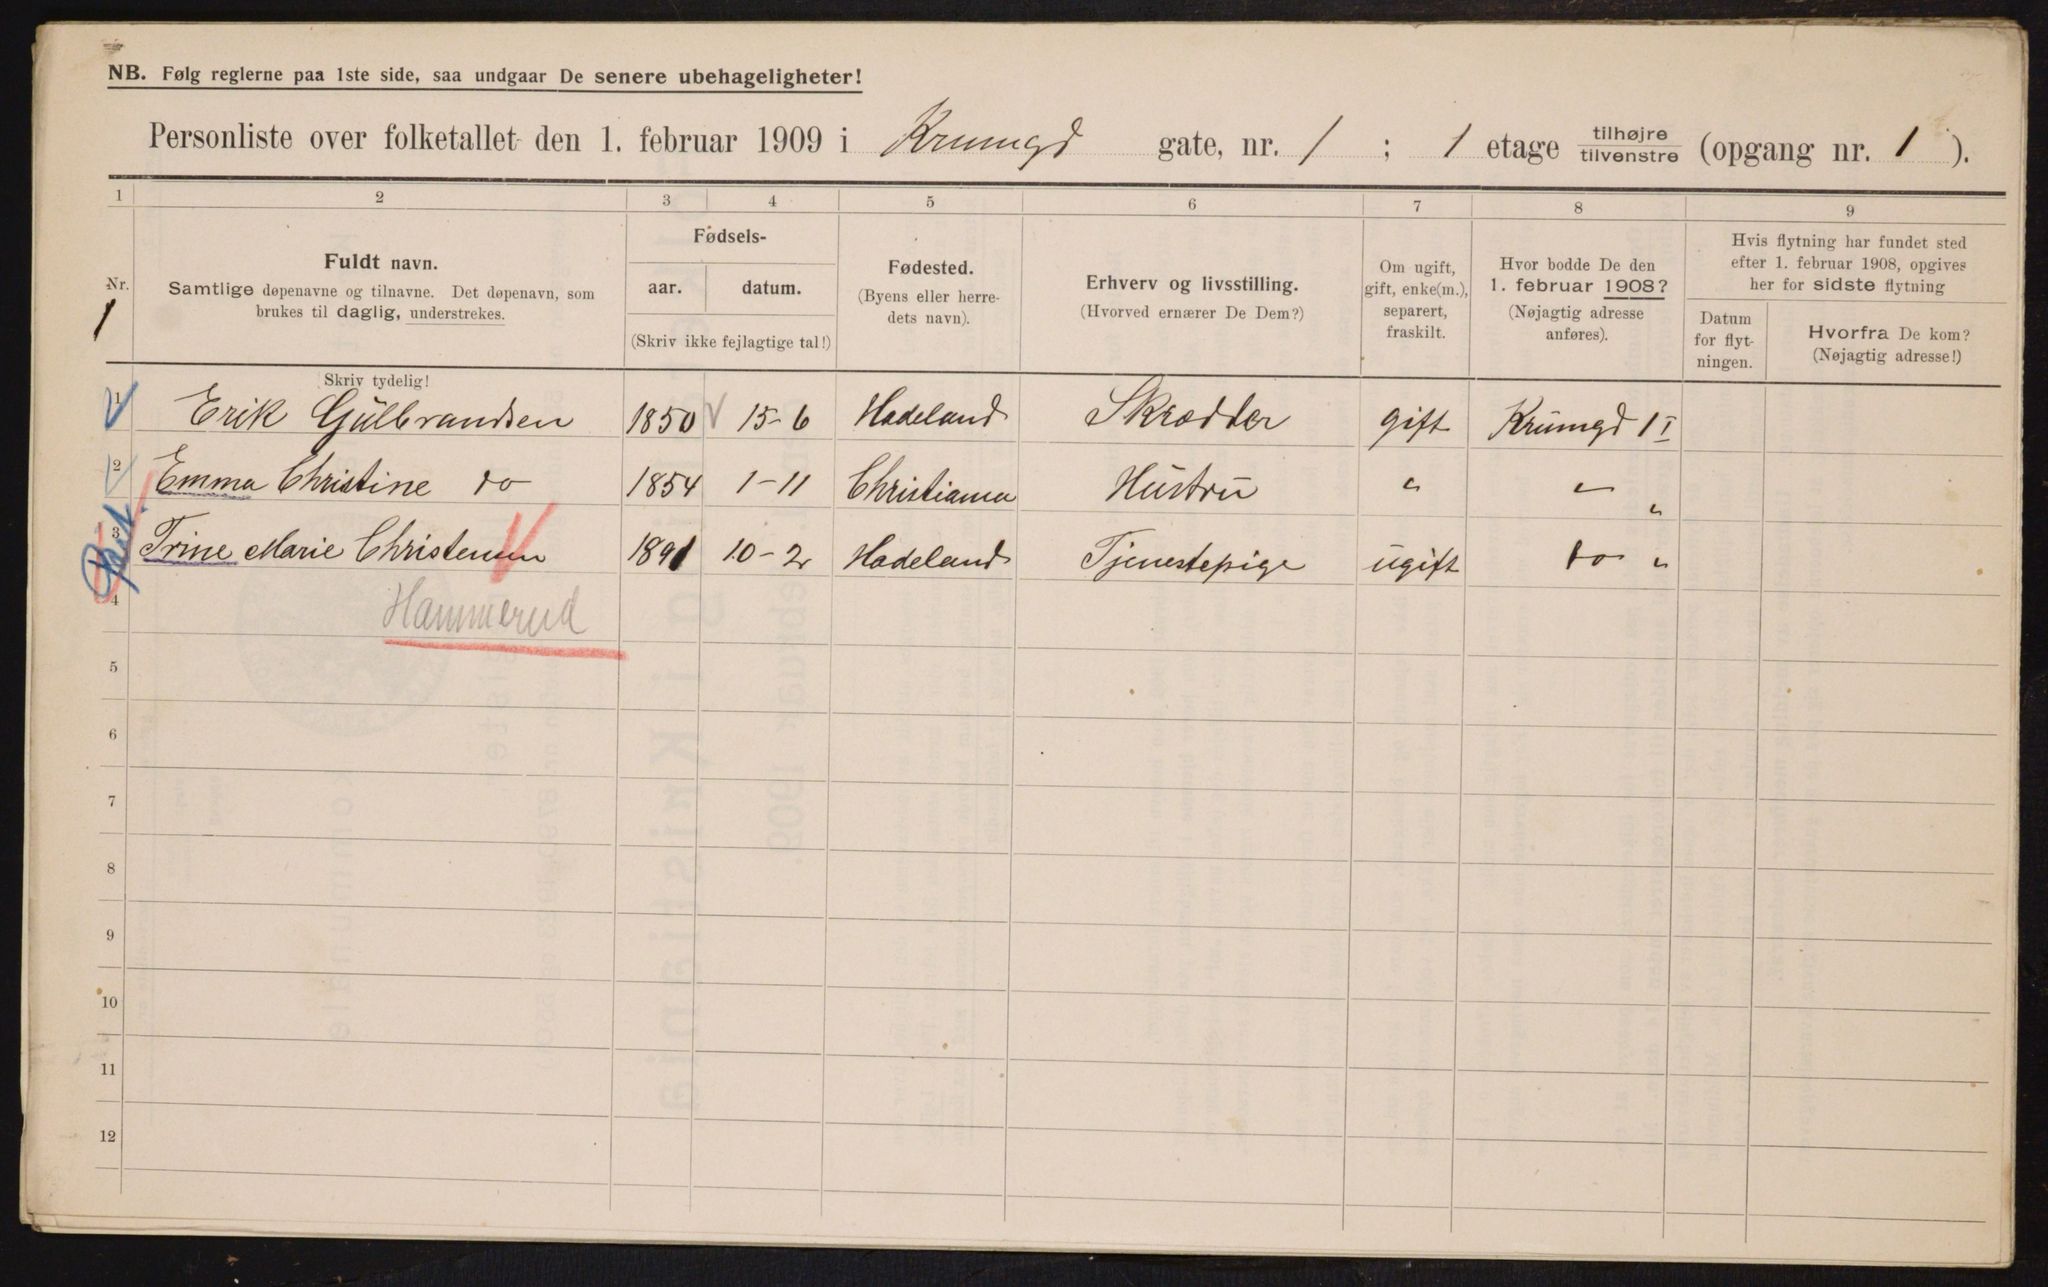 NB. Følg reglerne paa 1ste side, saa undgaar De senere ubehageligheter!
Personliste over folketallet den 1. februar 1909 i Krumgd gate, nr. 1 ; 1 etage tilhøjre tilvenstre (opgang nr. 1 ).
1 2 3 4 5 6 7 8 9
Nr. 1
Fuldt navn.
Samtlige døpenavne og tilnavne. Det døpenavn, som
brukes til daglig, understrekes.
Skriv tydelig!
Fødsels-
aar. datum.
(Skriv ikke fejlagtige tal!)
Fødested.
(Byens eller herre-
dets navn).
Erhverv og livsstilling.
(Hvorved ernærer De Dem?)
Om ugift,
gift, enke(m.),
separert,
fraskilt.
Hvor bodde De den
1. februar 1908?
(Nøjagtig adresse
anføres).
Hvis flytning har fundet sted
efter 1. februar 1908, opgives
her for sidste flytning
Datum
for flyt-
ningen.
Hvorfra De kom?
(Nøjagtig adresse!)
1 Erik Gülbrandsen 1850 15-6 Hadeland Skrædder gift Krumgd 1 I
2 Emma Christine do 1854 1-11 Christiania Hüstrü " " "
3 Trine Marie Christensen 1891 10-2 Hadeland Tjenestepige ugift do "
4 Hammerud
5
6
7
8
9
10
11
12